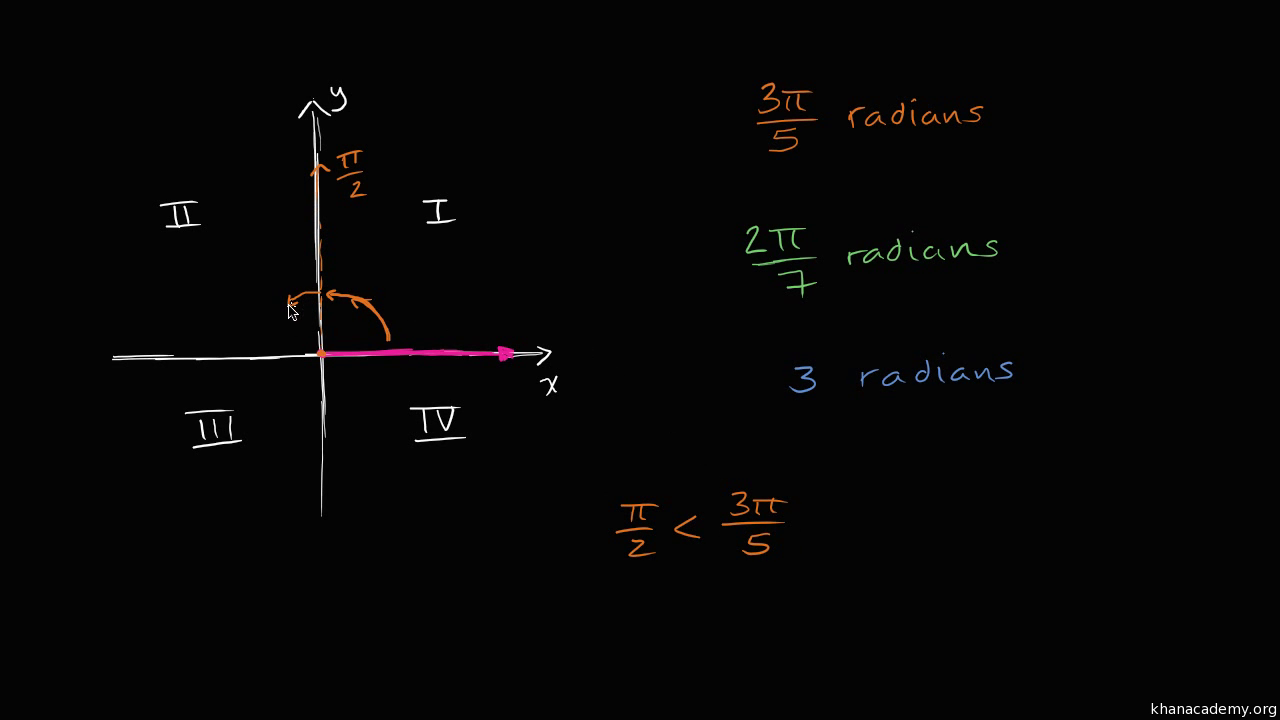 y
π/2
II
I
x
III
IV
3π/5 radians
2π/7 radians
3 radians
π/2 < 3π/5
khanacademy.org